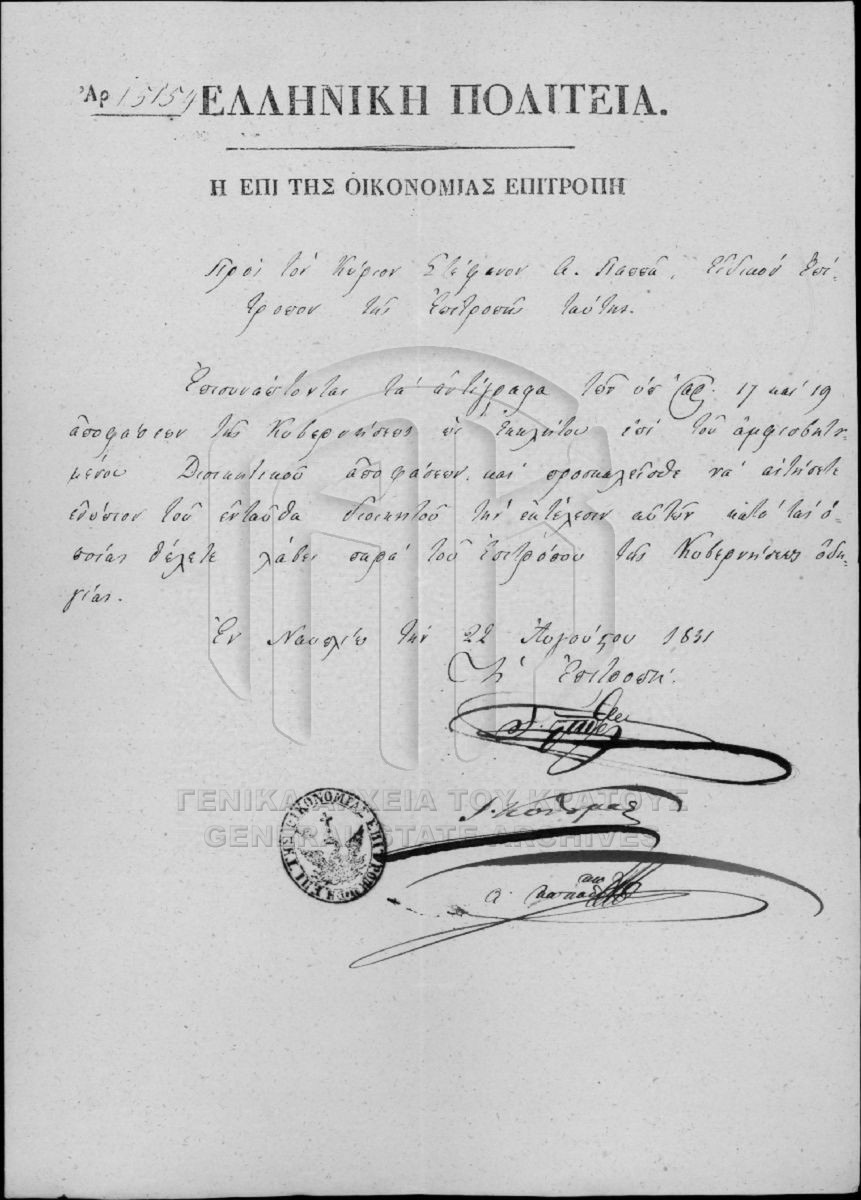 Ἀρ 15154 ΕΛΛΗΝΙΚΗ ΠΟΛΙΤΕΙΑ.
Η ΕΠΙ ΤΗΣ ΟΙΚΟΝΟΜΙΑΣ ΕΠΙΤΡΟΠΗ
Πρὸς τὸν Κύριον Στέφανον Α. Παππᾶ, εἰδικὸν ἐπί-
τροπον τῆς ἐπιτροπῆς ταύτης.
Ἐπισυνάπτονται τὰ ἀντίγραφα τῶν ὑπ' ἀρ. 17 καὶ 19
ἀποφάσεων τῆς Κυβερνήσεως ὡς ἐκκλήτου ἐπὶ τοῦ ἀμφισβητη-
μένου Διοικητικοῦ ἀποφάσεων, καὶ προσκαλεῖσθε νὰ αἰτήσετε
ἐνώπιον τοῦ ἐνταῦθα διοικητοῦ τὴν ἐκτέλεσιν αὐτῶν κατὰ τὰς ὁ-
ποίας θέλετε λάβει παρὰ τοῦ ἐπιτρόπου τῆς Κυβερνήσεως ὁδη-
γίας.
Ἐν Ναυπλίῳ τὴν 22 Αὐγούστου 1831
Ἡ Ἐπιτροπή.
ΓΕΝΙΚΑ ΑΡΧΕΙΑ ΤΟΥ ΚΡΑΤΟΥΣ
GENERAL STATE ARCHIVES
Η ΕΠΙ ΤΗΣ ΟΙΚΟΝΟΜΙΑΣ ΕΠΙΤΡΟΠΗ